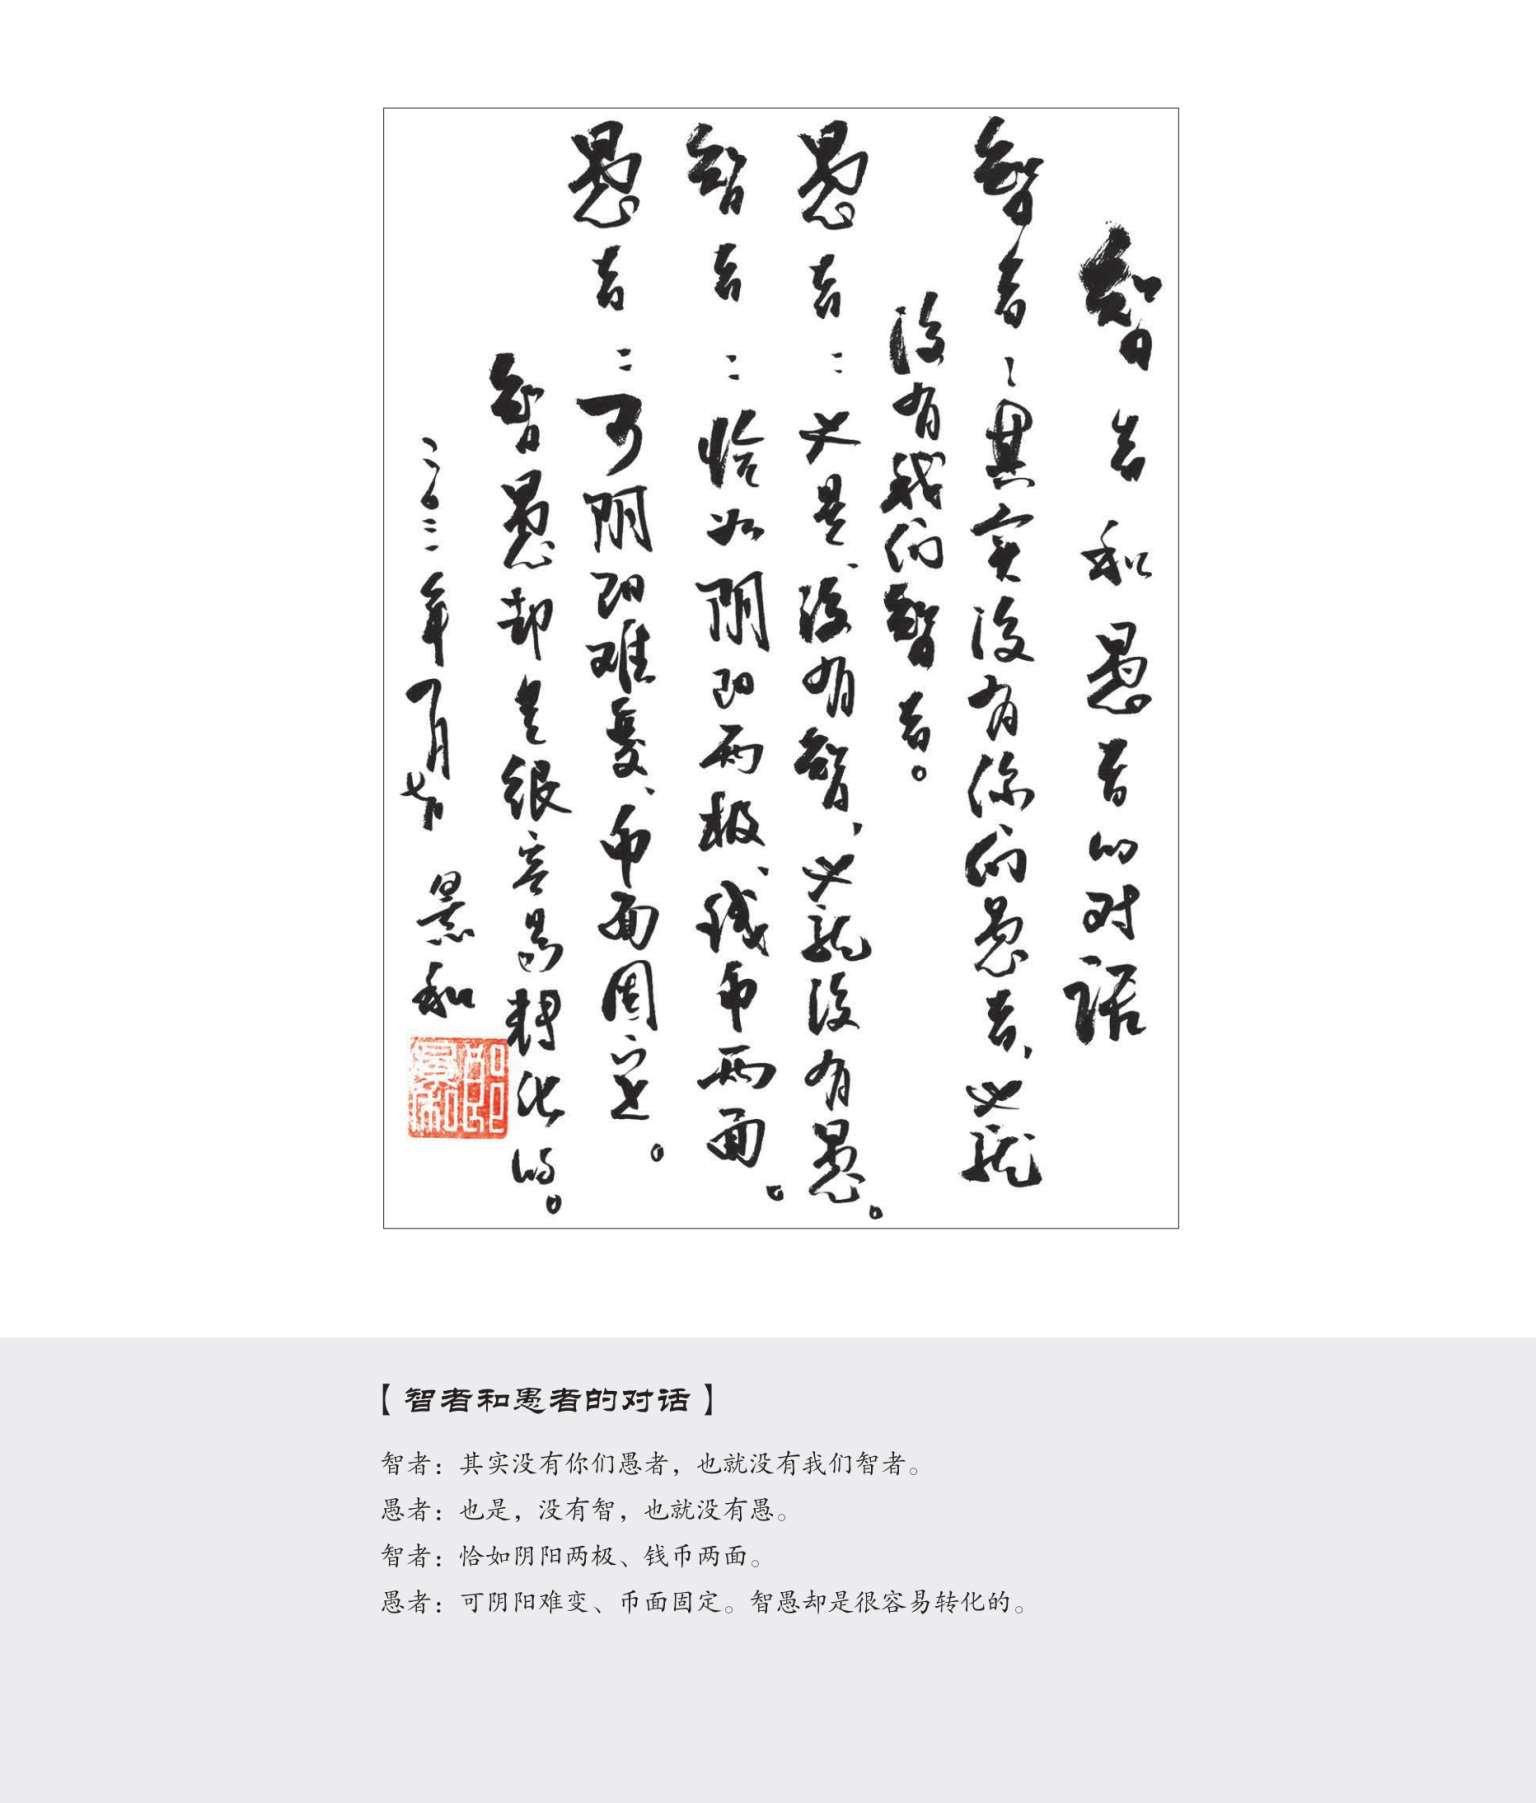 智者和愚者的对话
智者：其实没有你们愚者，也就
没有我们智者。
愚者：也是、没有智，也就没有愚。
智者：恰如阴阳两极、钱币两面。
愚者：可阴阳难变、币面固定。
智愚却是很容易转化的。
景和
【智者和愚者的对话】
智者：其实没有你们愚者，也就没有我们智者。
愚者：也是，没有智，也就没有愚。
智者：恰如阴阳两极、钱币两面。
愚者：可阴阳难变、币面固定。智愚却是很容易转化的。